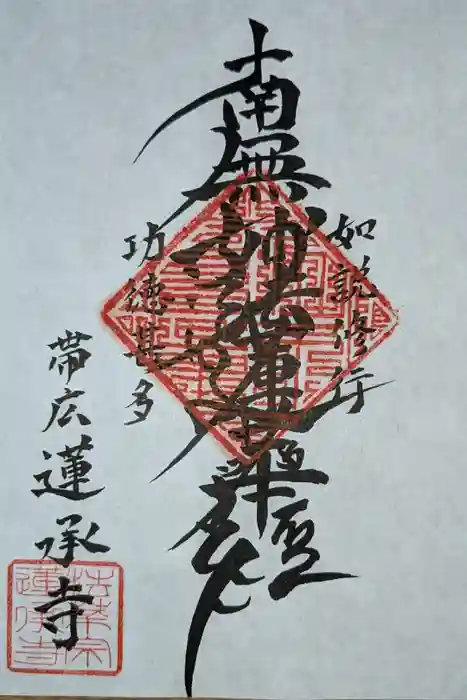 如説修行
南無妙法蓮華経
功徳甚多
帯広
蓮承寺